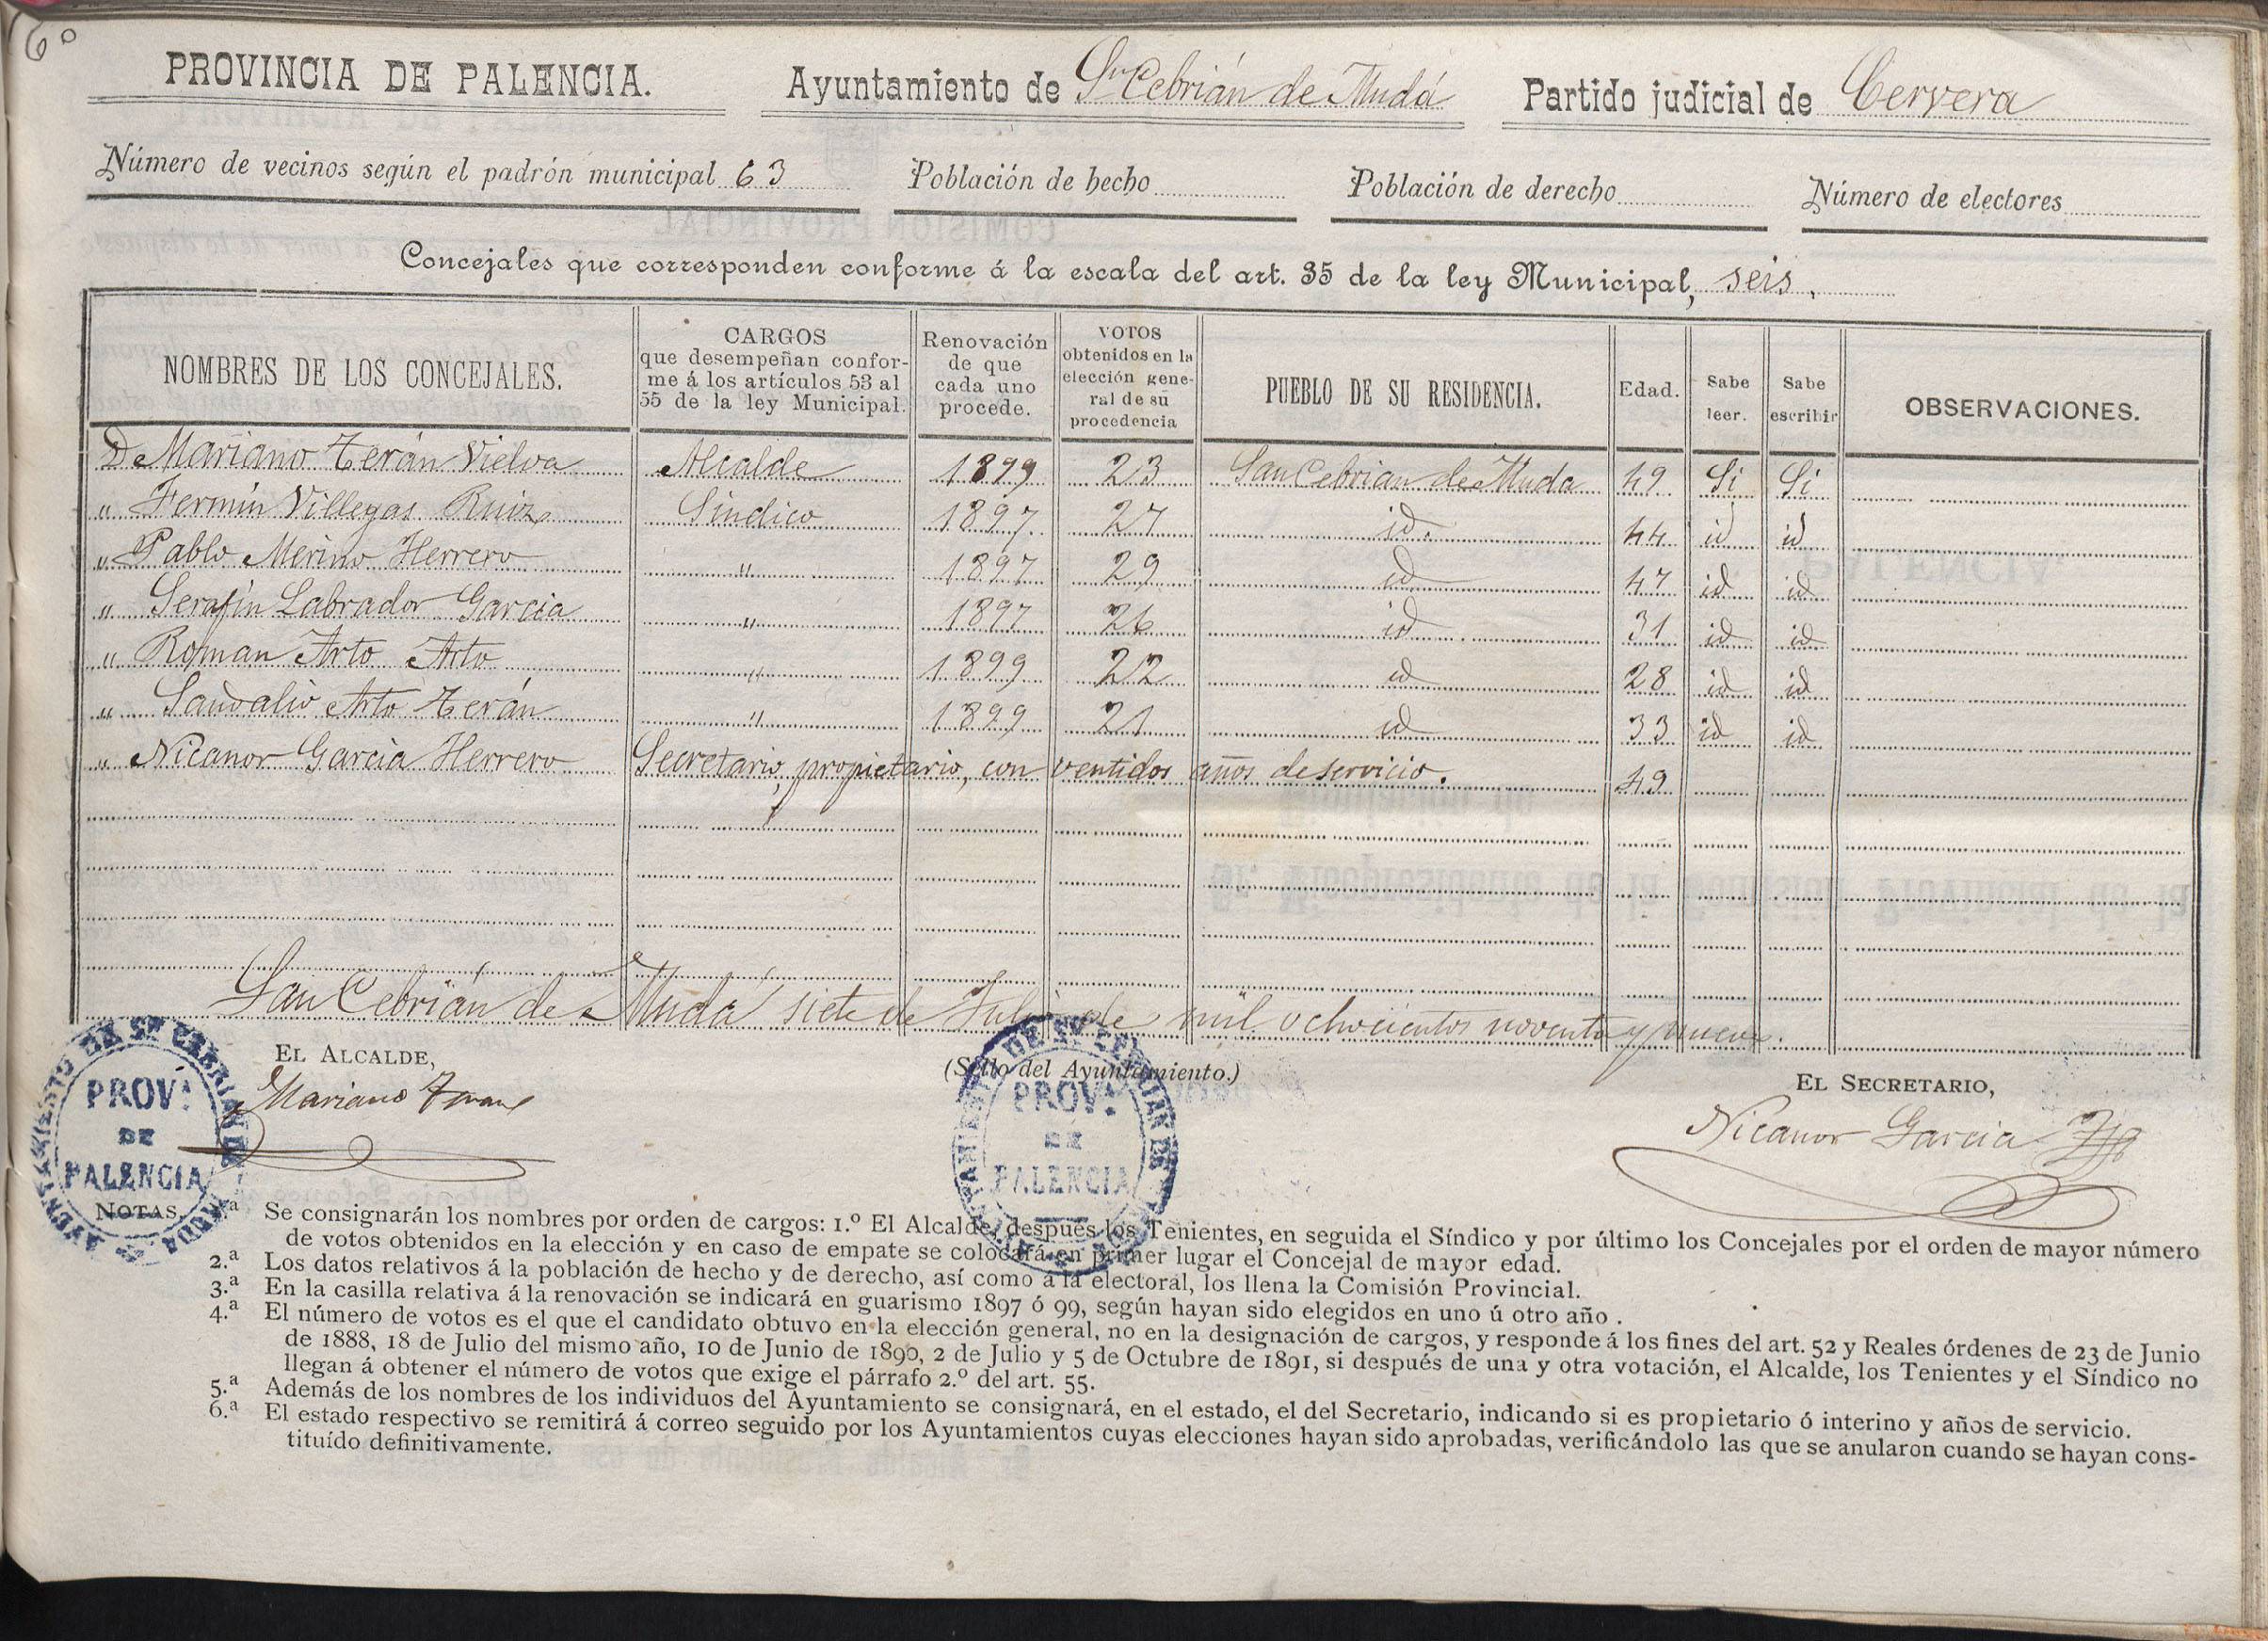 6º
PROVINCIA DE PALENCIA. Ayuntamiento de Sn Cebrián de Mudá Partido judicial de Cervera
Número de vecinos según el padrón municipal 63 Población de hecho Población de derecho Número de electores
Concejales que corresponden conforme á la escala del art. 35 de la ley Municipal, seis.
NOMBRES DE LOS CONCEJALES.
CARGOS
que desempeñan confor-
me á los artículos 53 al
55 de la ley Municipal.
Renovación
de que
cada uno
procede.
VOTOS
obtenidos en la
elección gene-
ral de su
procedencia
PUEBLO DE SU RESIDENCIA.
Edad.
Sabe
leer.
Sabe
escribir
OBSERVACIONES.
Dn Mariano Terán Vielva Alcalde 1899 23 San Cebrian de Muda 49 Si Si
" Fermín Villegas Ruiz Sindico 1897. 27 id. 44 id id
" Pablo Merino Herrero " 1897 29 id 47 id id
" Serafín Labrador Garcia " 1897 26 id 31 id id
" Roman Arto Arto " 1899 22 id 28 id id
" Sandalio Arto Terán " 1899 21 id 33 id id
" Nicanor Garcia Herrero Secretario, propietario, con ventidos años de servicio. 49
San Cebrián de Mudá siete de Julio de mil ochocientos noventa y nueve.
EL ALCALDE,
Mariano Teran
(Sello del Ayuntamiento.)
EL SECRETARIO,
Nicanor Garcia
AYUNTAMIENTO DE Sn CEBRIAN DE MUDA
PROV.
DE
PALENCIA
AYUNTAMIENTO DE Sn CEBRIAN DE MUDA
PROV.
DE
PALENCIA
NOTAS. 1.ª Se consignarán los nombres por orden de cargos: 1.º El Alcalde, después los Tenientes, en seguida el Síndico y por último los Concejales por el orden de mayor número
de votos obtenidos en la elección y en caso de empate se colocará en primer lugar el Concejal de mayor edad.
2.ª Los datos relativos á la población de hecho y de derecho, así como á la electoral, los llena la Comisión Provincial.
3.ª En la casilla relativa á la renovación se indicará en guarismo 1897 ó 99, según hayan sido elegidos en uno ú otro año .
4.ª El número de votos es el que el candidato obtuvo en la elección general, no en la designación de cargos, y responde á los fines del art. 52 y Reales órdenes de 23 de Junio
de 1888, 18 de Julio del mismo año, 10 de Junio de 1890, 2 de Julio y 5 de Octubre de 1891, si después de una y otra votación, el Alcalde, los Tenientes y el Síndico no
llegan á obtener el número de votos que exige el párrafo 2.º del art. 55.
5.ª Además de los nombres de los individuos del Ayuntamiento se consignará, en el estado, el del Secretario, indicando si es propietario ó interino y años de servicio.
6.ª El estado respectivo se remitirá á correo seguido por los Ayuntamientos cuyas elecciones hayan sido aprobadas, verificándolo las que se anularon cuando se hayan cons-
tituído definitivamente.